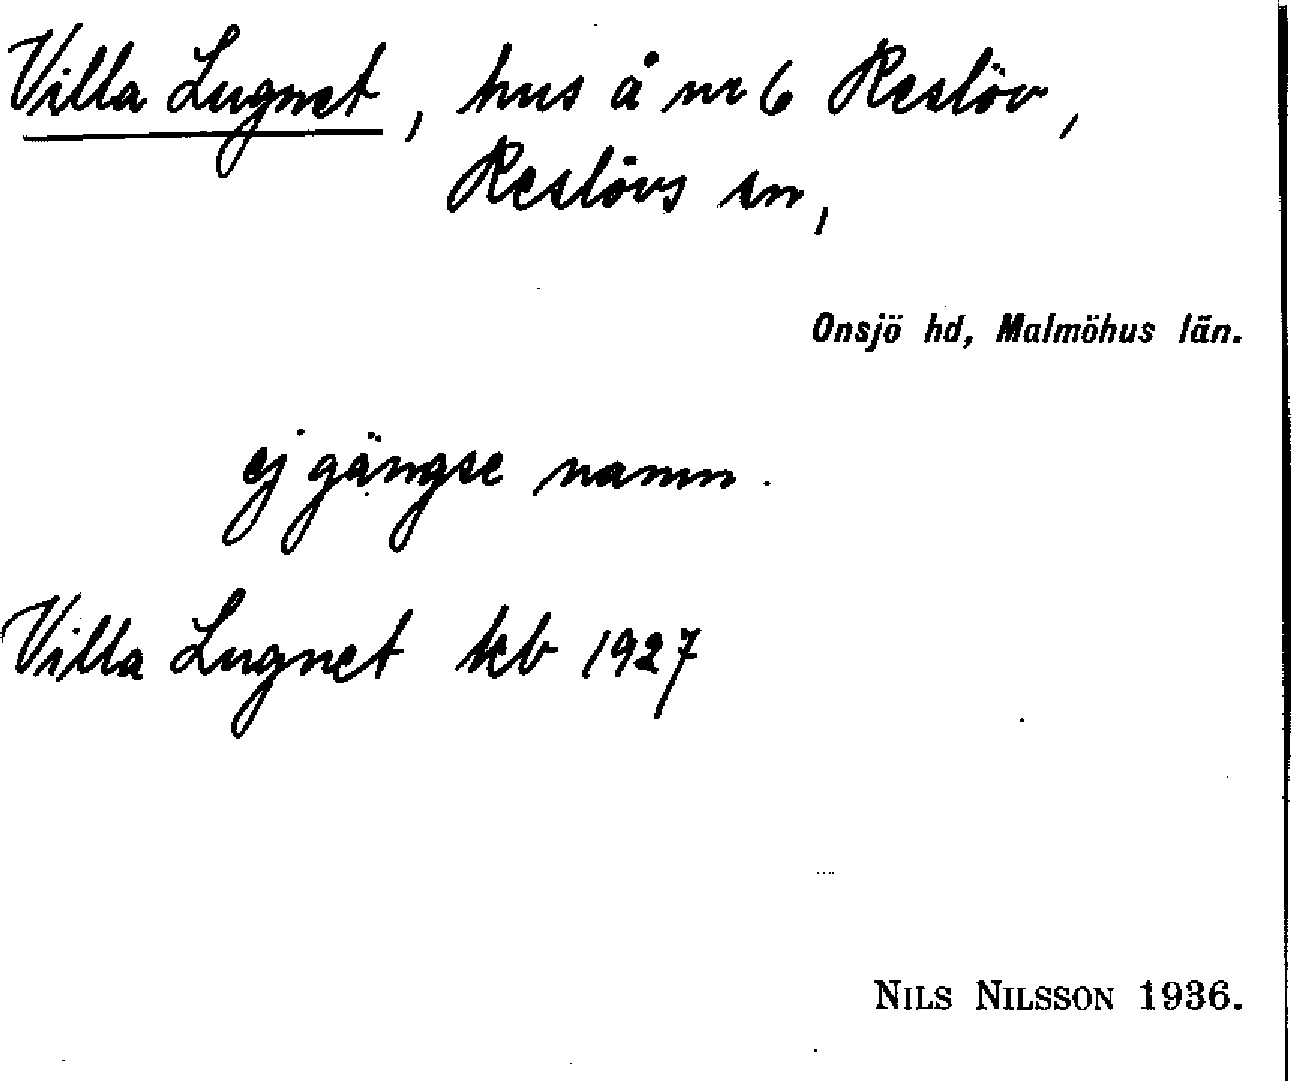 Villa Lugnet, hus å nr 6 Reslöv,
Reslövs sn,
Onsjö hd, Malmöhus län.
ej gängse namn.
Villa Lugnet kb 1927
NILS NILSSON 1936.